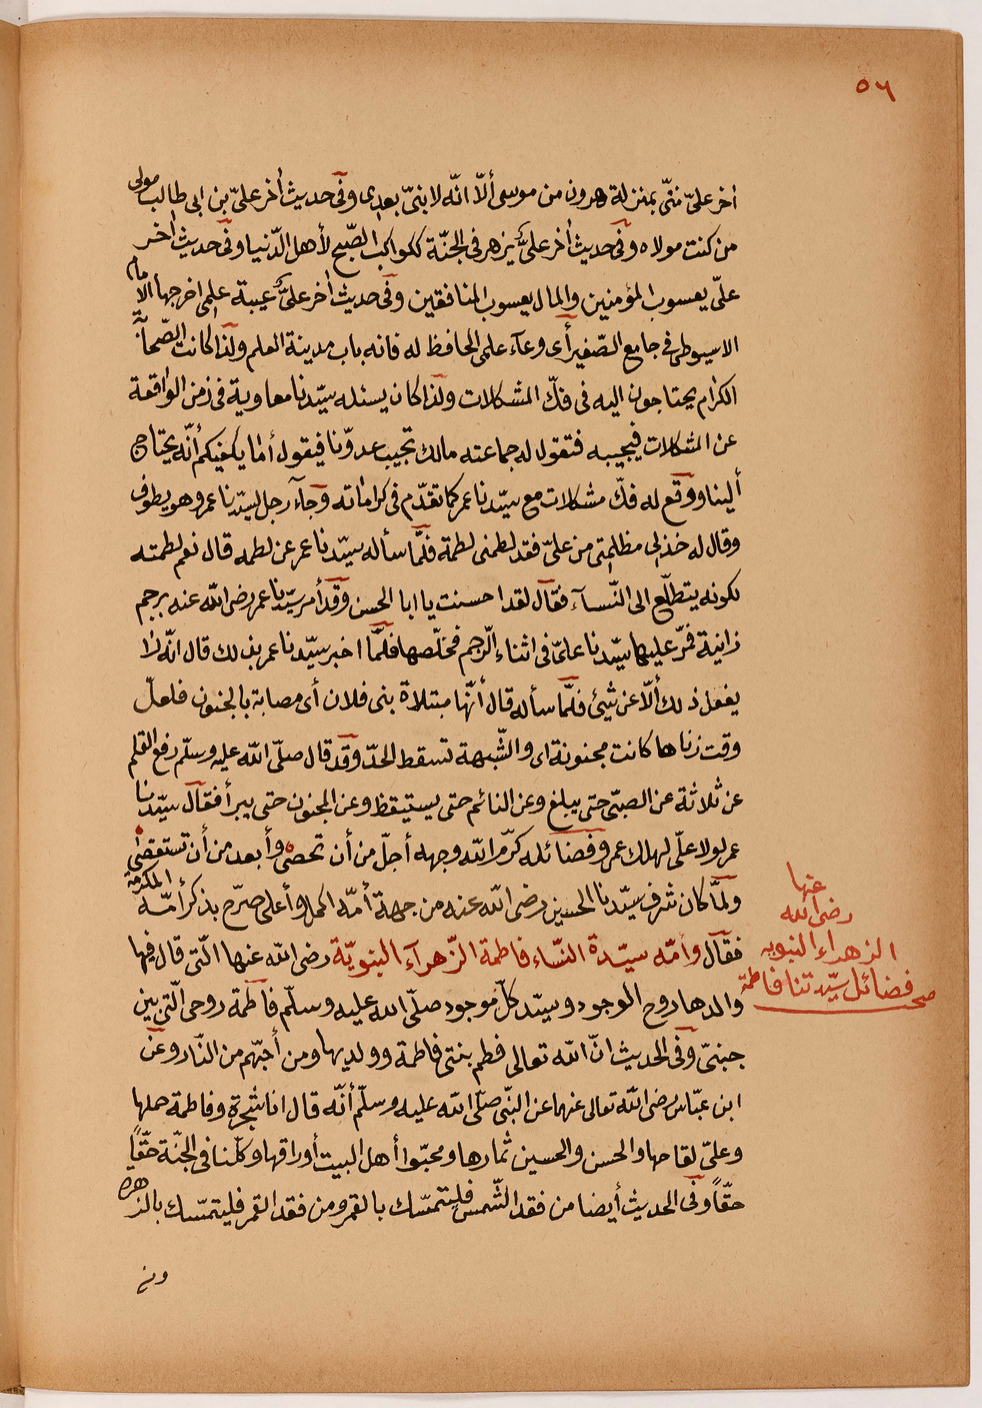 ٥٦
أخر علىّ منّى بمنزلة هرون من موسى ألّا انّه لا نبىّ بعدى وفى حديث أخر علىّ بن ابى طالب مولى
من كنت مولاه وفى حديث أخر علىّ يزهر فى الجنّة ككواكب الصّبح لأهل الدّنيا وفى حديث أخر
علىّ يعسوب المؤمنين والمال يعسوب المنافقين وفى حديث أخر علىّ عيبة علمى اخرجها الامام
الاسيوطى فى جامع الصّغير أى وعآء علمى الحافظ له فانه باب مدينة العلم ولذا كانت الصّحابة
الكرام يحتاجون اليه فى فكّ المشكلات ولذا كان يسئله سيّدنا معاوية فى زمن الواقعة
عن المشكلات فيجيبه فتقول له جماعته مالك تجيب عدوّنا فيقول أما يكفيكم أنّه يحتاج
ألينا ووقع له فكّ مشكلات مع سيّدنا عمر كما تقدّم فى كراماته وجآء رجل لسيّدنا عمر وهو يطوف
وقال له خذ لى مظلمتى من علىّ فقد لطمنى لطمة فلمّا سأله سيّدنا عمر عن لطمه قال نعم لطمته
لكونه يتطلّع الى النّسآء فقال لقد احسنت يا ابا الحسن وقد أمر سيّدنا عمر رضى الله عنه برجم
زانية فمرّ عليها سيّدنا علىّ فى اثناء الرّجم فخلّصها فلمّا اخبر سيّدنا عمر بذلك قال انّه لا
يفعل ذلك ألّا عن شيئ فلمّا سأله قال أنّها مبتلاة بنى فلان أى مصابة بالجنون فلعلّ
وقت زناها كانت مجنونة اى والشّبهة تسقط الحدّ وقد قال صلّى الله عليه وسلّم رفع القلم
عن ثلاثة عن الصبىّ حتى يبلغ وعن النائم حتى يستيقظ وعن المجنون حتى يبرأ فقال سيّدنا
عمر لولا علىّ لهلك عمر وفضائله كرّم الله وجهه أجلّ من أن تحصى وأبعد من أن تستقصى
ولمّا كان شرف سيّدنا الحسين رضى الله عنه من جهة أمّه اكمل وأعلى صرّح بذكر أمّه المكرمة
فقال وأمّه سيّدة النّساء فاطمة الزّهرآء النبويّة رضى الله عنها الّتى قال فيها
والدها روح الوجود وسيّد كلّ موجود صلّى الله عليه وسلّم فاطمة روحى الّتى بين
جنبىّ وفى الحديث انّ الله تعالى فطم بنتى فاطمة وولديها ومن أحبّهم من النّار وعن
ابن عبّاس رضى الله تعالى عنهما عن النبىّ صلّى الله عليه وسلّم أنّه قال انا شجرة وفاطمة حملها
وعلىّ لقاحها والحسن والحسين ثمارها ومحبّوا أهل البيت أوراقها وكلّنا فى الجنّة حقّا
حقّا وفى الحديث أيضا من فقد الشّمس فليتمسّك بالقمر ومن فقد القمر فليتمسّك بالزهرة
فضائل سيّدتنا فاطمة
الزهراء النبويه
رضى الله
عنها